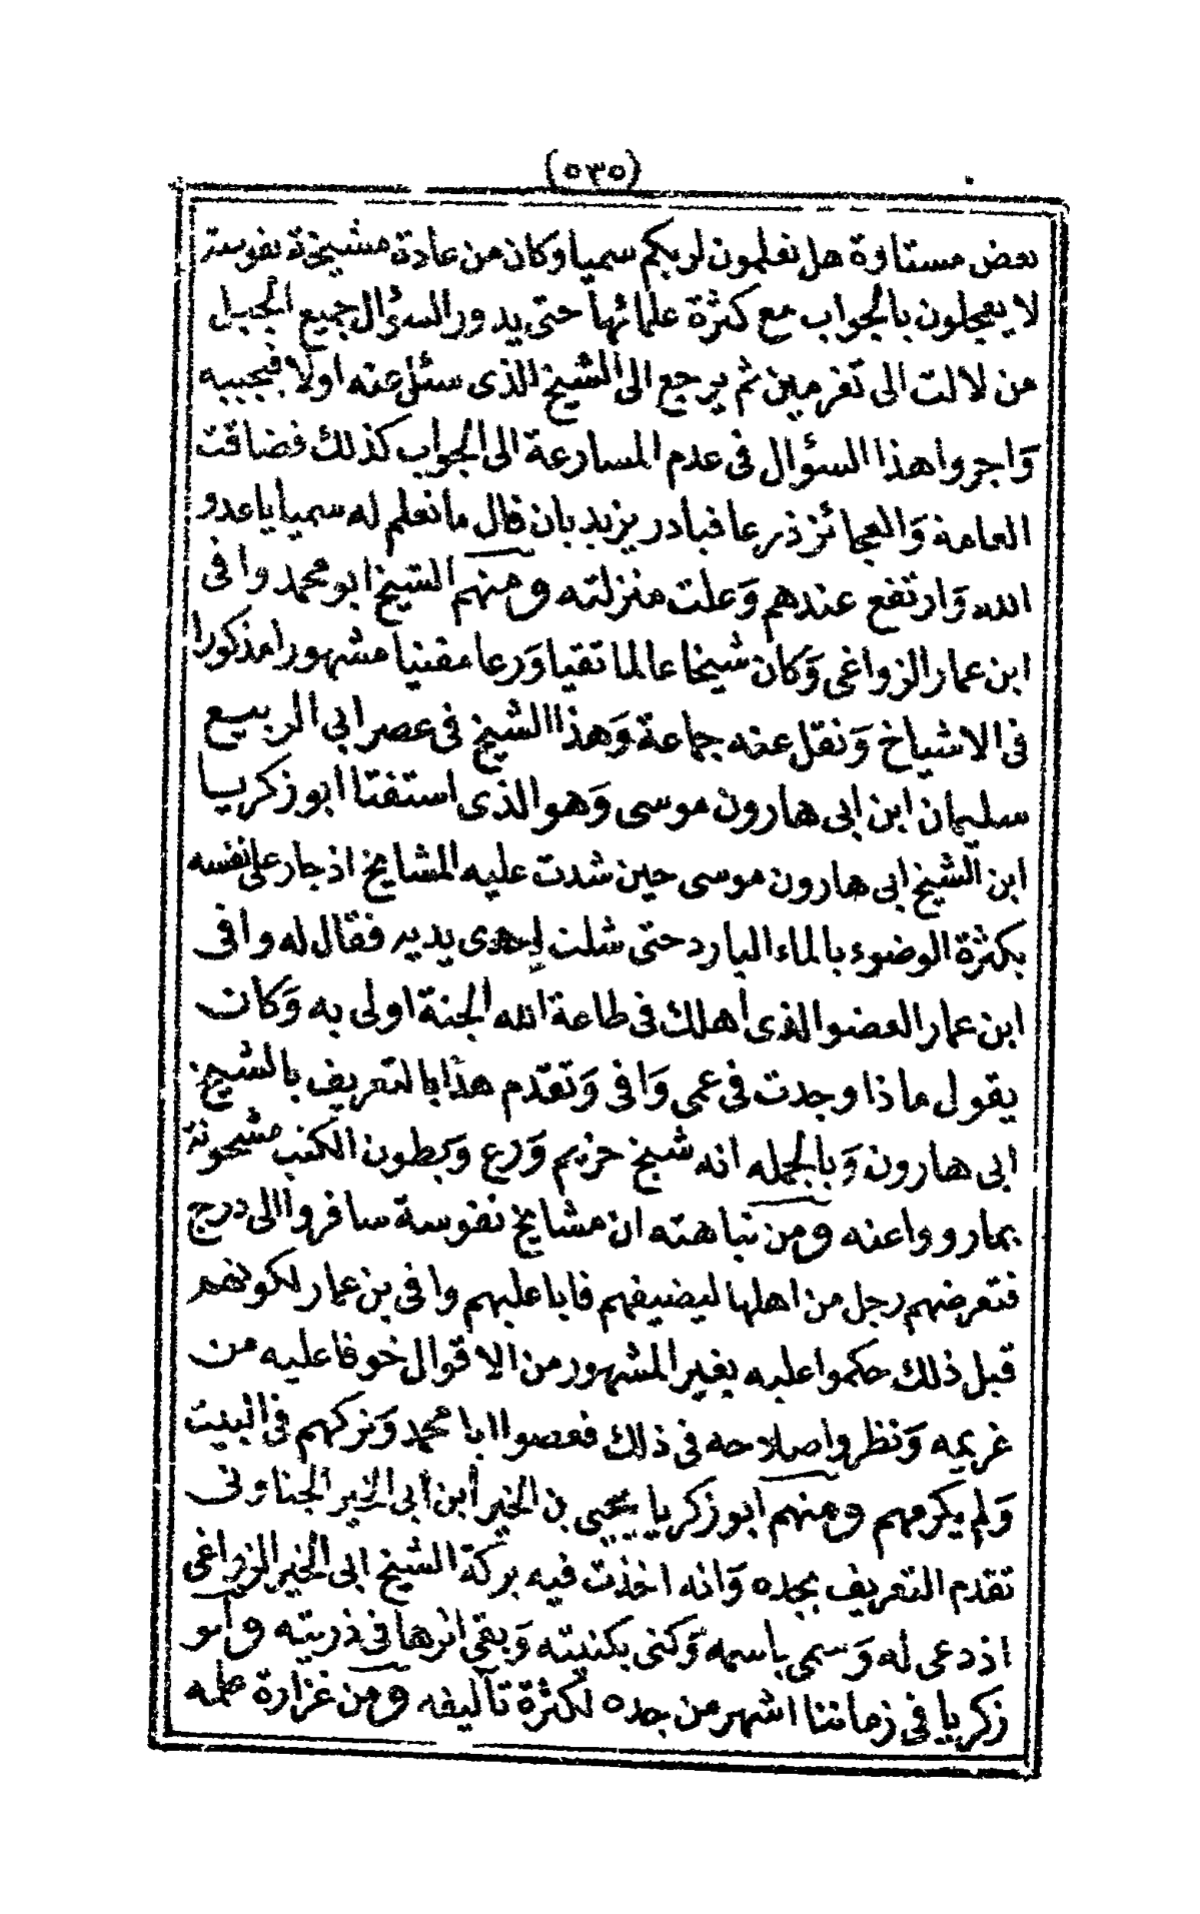 (٥٣٥)
بعض مستاوة هل تعلمون لربكم سميا وكان من عادة مشيخة نفوسة
لا يعجلون بالجواب مع كثرة علمائها حتى يدور السؤال جميع الجبل
من لالت الى تغرمين ثم يرجع الى الشيخ الذى سئل عنه اولا فيجيبه
وَاجروا هذا السؤال فى عدم المسارعة الى الجواب كذلك فضاقت
العامة وَالعجائز ذرعا فبادر يزيد بان قال ما نعلم له سميا ياعدو
الله وَارتفع عندهم وَعلت منزلته ومنهم الشيخ ابو محمد وافى
ابن عمار الزواغى وَكان شيخا عالما تقيا وَرعا مفتيا مشهورا مذكورا
فى الاشياخ وَنقل عنه جماعة وَهذا الشيخ فى عصر ابى الربيع
سليمان ابن ابى هارون موسى وَهو الذى استفتا ابو زكريا
ابن الشيخ ابى هارون موسى حين شدت عليه المشايخ اذ جار على نفسه
بكثرة الوضوء بالماء البارد حتى شلت إحدى يديه فقال له وافى
ابن عمار العضو الذى اهلك فى طاعة الله الجنة اولى به وَكان
يقول ماذا وجدت فى عمى وَافى وَتقدم هذا بالتعريف بالشيخ
ابى هارون وَبالجمله انه شيخ حزيم وَرع وَبطون الكتب مشحونة
بمارووا عنه ومن نباهته ان مشايخ نفوسة سافروا الى درج
فتعرضهم رجل من اهلها ليضيفهم فابا عليهم وافى بن عمار لكونهم
قبل ذلك حكموا عليه بغير المشهور من الاقوال خوفا عليه من
غريمه وَنظروا صلاحه فى ذلك فعصوا ابا محمد وَتركهم فى البيت
وَلم يكرمهم ومنهم ابو زكريا يحيى بن الخير أبن أبى الخير الجناونى
تقدم التعريف بجده وَانه اخذت فيه بركة الشيخ ابى الخير الزواغى
اذ دعى له وَسمى باسمه وَكنى بكنيته وَبقى اثرها فى ذريته وأبو
زكريا فى زماننا اشهر من جده لكثرة تآليفه ومن غزارة علمه